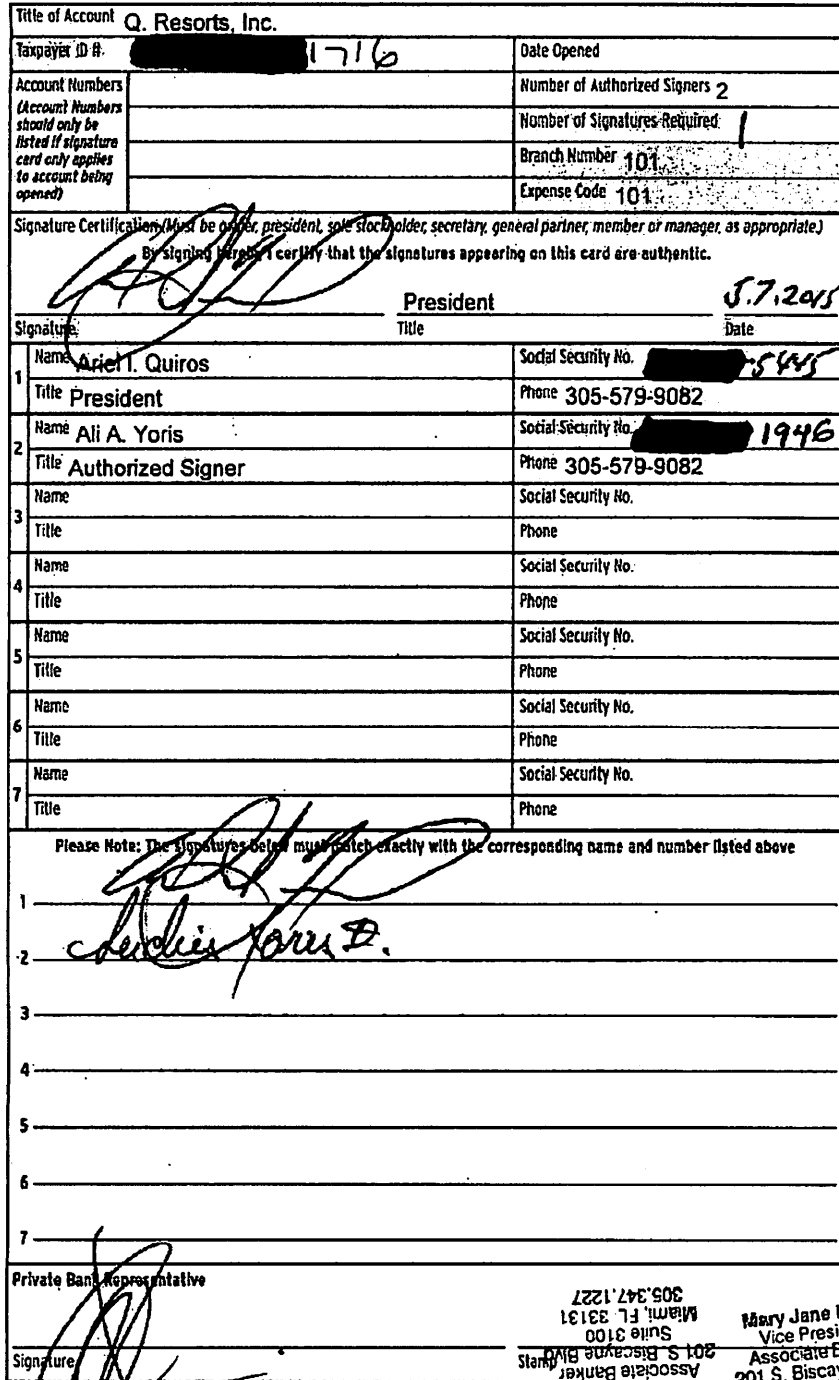 Title of Account Q. Resorts, Inc.
Taxpayer ID #. 1716
Date Opened
Account Numbers
(Account Numbers
should only be
listed if signature
card only applies
to account being
opened)
Number of Authorized Signers 2
Number of Signatures Required 1
Branch Number 101
Expense Code 101
Signature Certification (Must be owner, president, sole stockholder, secretary, general partner, member or manager, as appropriate.)
By signing hereby I certify that the signatures appearing on this card are authentic.
President 5.7.2015
Signature Title Date
1
Name Ariel I. Quiros Social Security No. 5445
Title President Phone 305-579-9082
2
Name Ali A. Yoris Social Security No. 1946
Title Authorized Signer Phone 305-579-9082
3
Name Social Security No.
Title Phone
4
Name Social Security No.
Title Phone
5
Name Social Security No.
Title Phone
6
Name Social Security No.
Title Phone
7
Name Social Security No.
Title Phone
Please Note: The signatures below must match exactly with the corresponding name and number listed above
1
2 Yoris D.
3
4
5
6
7
Private Bank Representative
Signature
Stamp
Associate Banker
201 S. Biscayne Blvd
Suite 3100
Miami, FL 33131
305.347.1227
Mary Jane
Vice Presi
Associate B
201 S. Biscay